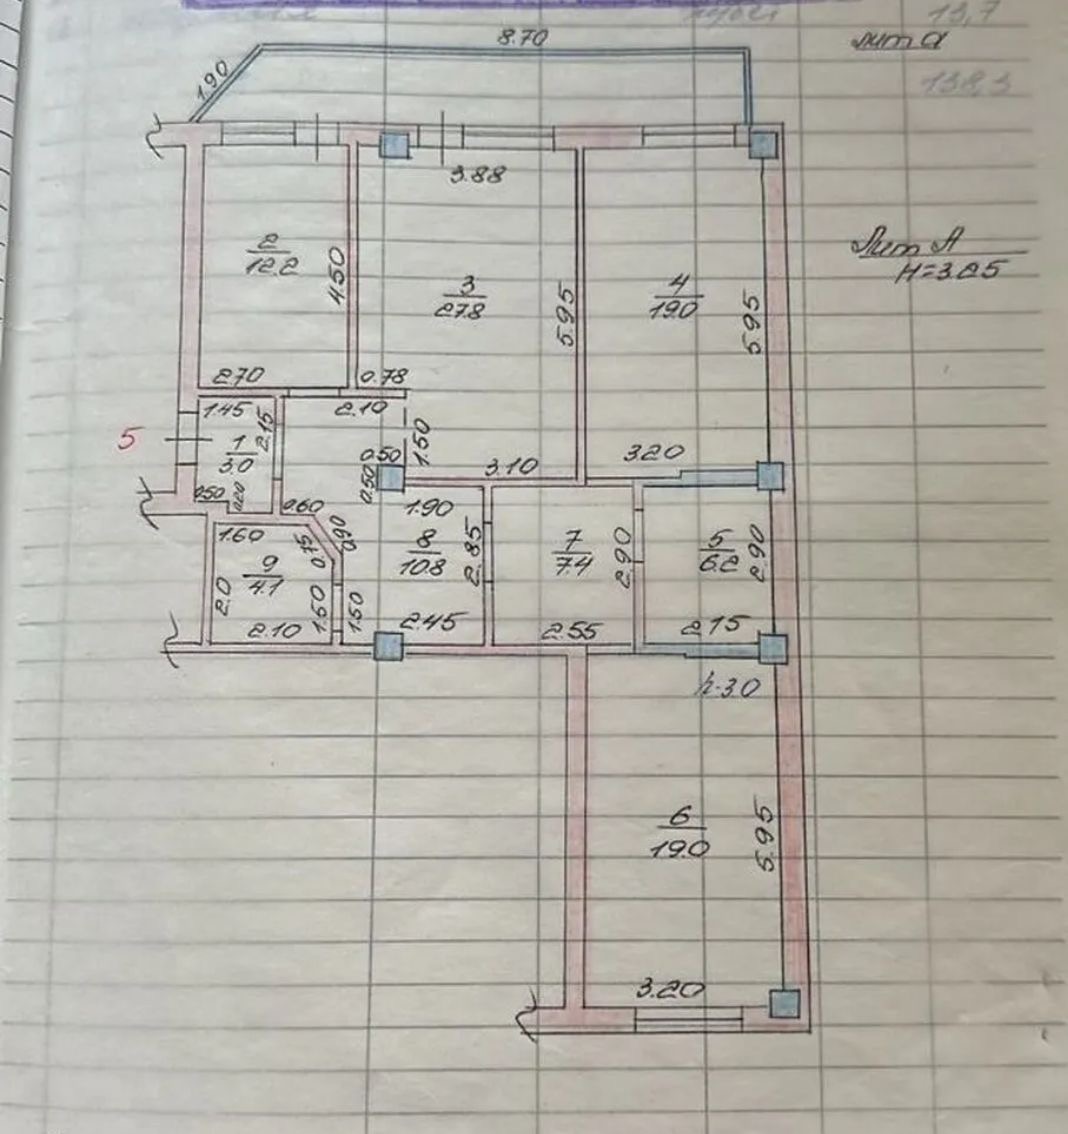 13,7
8.70
лит а
1.90
138,3
3.88
2
12.2
4.50
Лит А
H=3.25
3
27.8
5.95
4
19.0
5.95
2.70
0.78
1.45
2.10
5
1
3.0
2.15
1.50
0.50
0.50
3.10
3.20
0.50
0.20
0.60
1.90
1.60
0.75
0.60
8
10.8
2.85
7
7.4
2.90
5
6.2
2.90
9
4.1
2.0
1.50
1.50
2.10
2.45
2.55
2.15
h-3.0
6
19.0
5.95
3.20